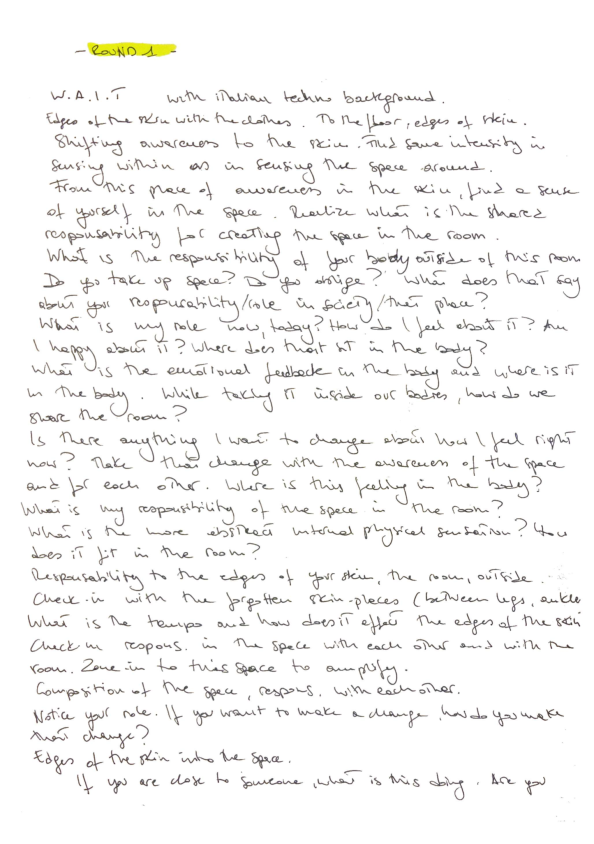 - ROUND 1 -
W.A.I.T with italian techno background.
Edges of the skin with the clothes. To the floor, edges of skin.
Shifting awareness to the skin. Find same intensity in
sensing within as in sensing the space around.
From this place of awareness in the skin, find a sense
of yourself in the space. Realize what is the shared
responsability for creating the space in the room.
What is the responsibility of your body outside of this room
Do you take up space? Do you oblige? What does that say
about your responsability/role in society/that place?
What is my role now, today? How do I feel about it? Am
I happy about it? Where does that sit in the body?
What is the emotional feedback in the body and where is it
in the body. While taking it inside our bodies, how do we
share the room?
Is there anything I want to change about how I feel right
now? Make that change with the awareness of the space
and for each other. Where is this feeling in the body?
What is my responsibility of the space in the room?
What is the more abstract internal physical sensation? How
does it fit in the room?
Responsability to the edges of your skin, the room, outside.
Check-in with the forgotten skin-places (between legs, ankle
What is the tempo and how does it affect the edges of the skin
Check in respons. in the space with each other and with the
room. Zone-in to this space to amplify.
Composition of the space, respons. with each other.
Notice your role. If you want to make a change, how do you make
that change?
Edges of the skin into the space.
If you are close to someone, what is this doing. Are you